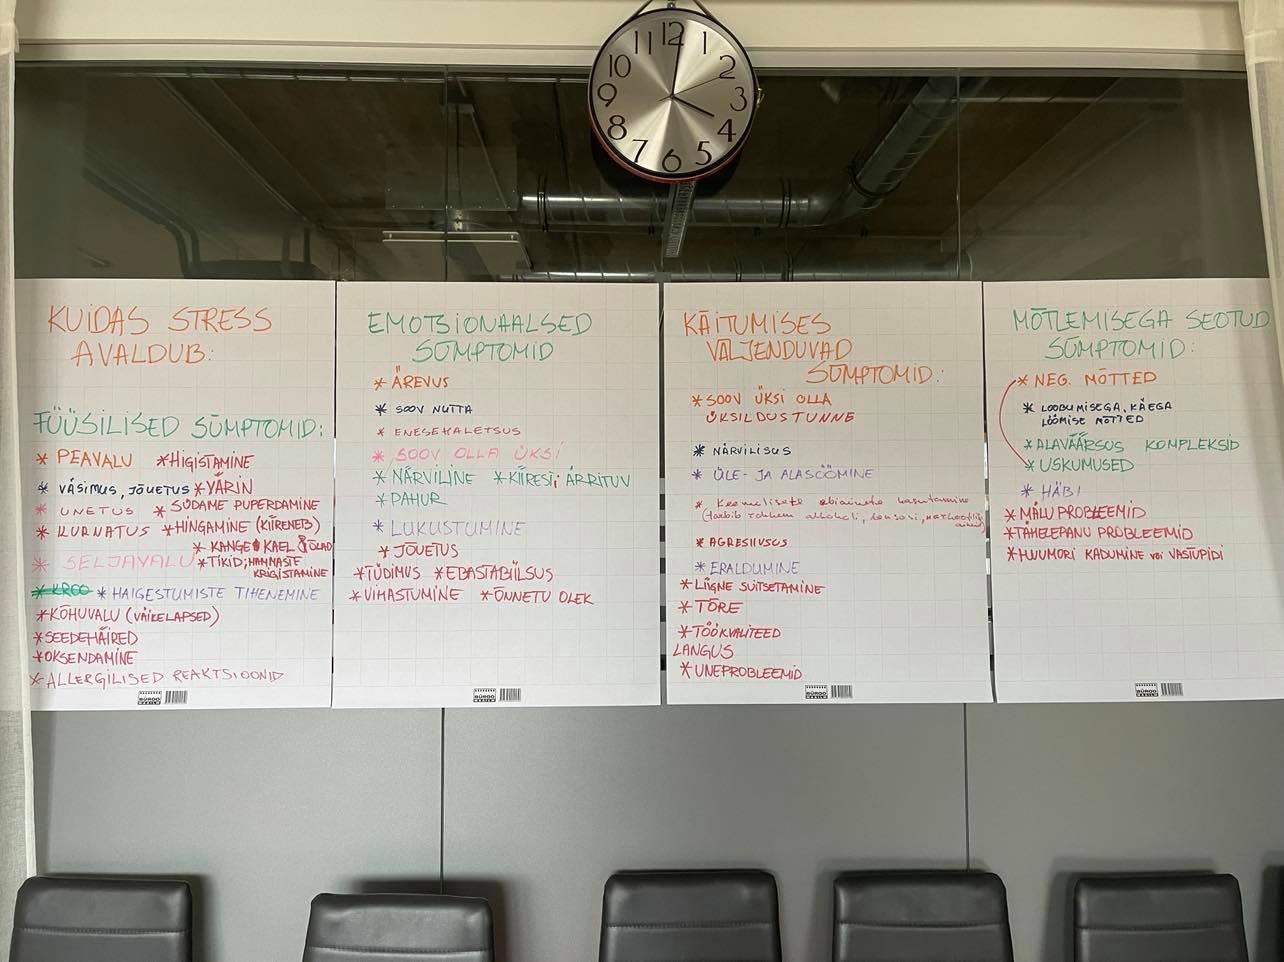 11 12 1
10 2
9 3
8 4
7 6 5
KUIDAS STRESS
AVALDUB:
FÜÜSILISED SÜMPTOMID:
* PEAVALU *HIGISTAMINE
* VÄSIMUS, JÕUETUS *VÄRIN
* UNETUS * SÜDAME PUPERDAMINE
* KURNATUS *HINGAMINE (KIIRENEB)
* KANGE KAEL & ÕLAD
* SELJAVALU *TIKID; HAMMASTE
KRIGISTAMINE
* KROO * HAIGESTUMISTE TIHENEMINE
*KÕHUVALU (VÄIKELAPSED)
*SEEDEHÄIRED
*OKSENDAMINE
*ALLERGILISED REAKTSIOONID
BÜROO
MAAILM
EMOTSIONAALSED
SÜMPTOMID
* ÄREVUS
* SOOV NUTTA
* ENESEHALETSUS
* SOOV OLLA ÜKSI
* NÄRVILINE *KIIRESTI ÄRRITUV
* PAHUR
* LUKUSTUMINE
* JÕUETUS
*TÜDIMUS *EBASTABIILSUS
*VIHASTUMINE *ÕNNETU OLEK
BÜROO
MAAILM
KÄITUMISES
VÄLJENDUVAD
SÜMPTOMID:
* SOOV ÜKSI OLLA
ÜKSILDUSTUNNE
* NÄRVILISUS
* ÜLE- JA ALASÖÖMINE
* Keemeliste abiainete kasutamine
(tarbib rohkem alkoholi,
* AGRESIIVSUS
* ERALDUMINE
*LIIGNE SUITSETAMINE
*TÕRE
*TÖÖKVALITEED
LANGUS
*UNEPROBLEEMID
BÜROO
MAAILM
MÕTLEMISEGA SEOTUD
SÜMPTOMID:
* NEG. MÕTTED
* LOOBUMISEGA, KÄEGA
LÖÖMISE MÕTTED
* ALAVÄÄRSUS KOMPLEKSID
* USKUMUSED
* HÄBI
*MÄLU PROBLEEMID
*TÄHELEPANU PROBLEEMID
*HUUMORI KADUMINE või VASTUPIDI
BÜROO
MAAILM